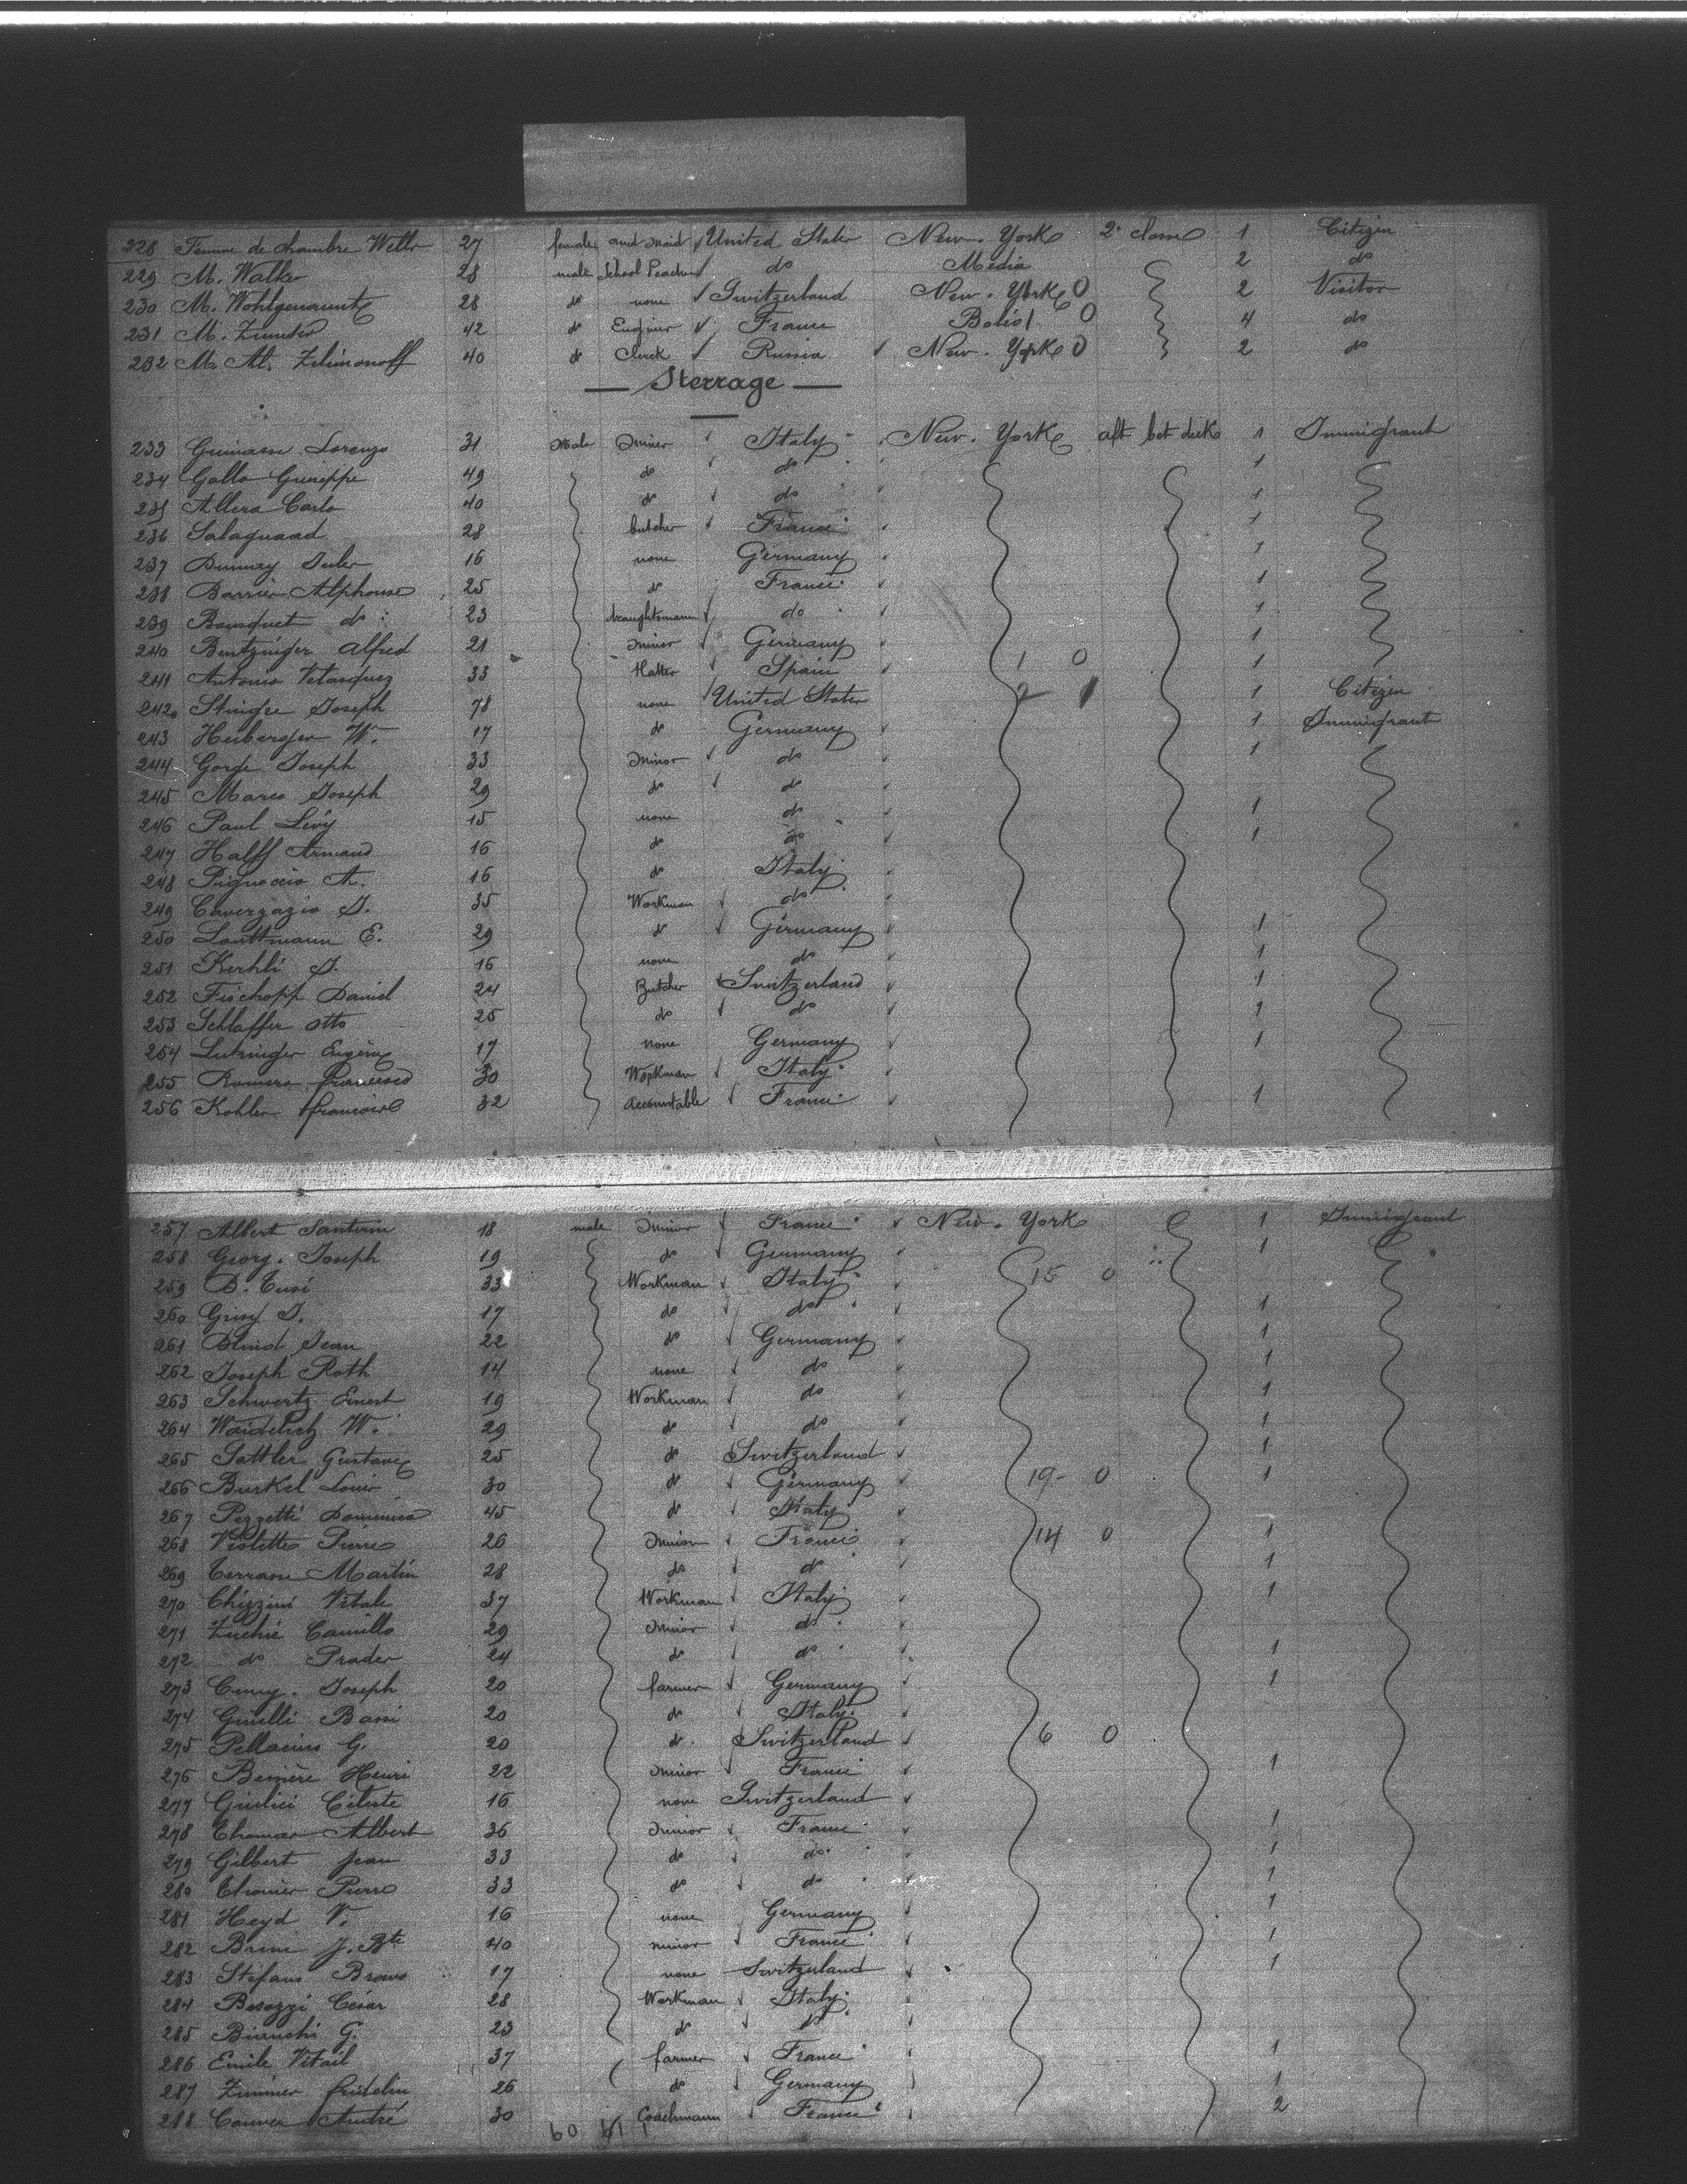 228 Femme de chambre Wells 27 female and maid United States New. York 2e classe 1 Citizen
229 M. Walker 28 male School Teacher do Media 2 do
230 M. Wohlgenaunt 28 do none Switzerland New. York 0 2 Visitor
231 M. 42 do Engineer France 0 4 do
232 M. Al. Zelimonoff 40 do Clerck Russia New. York 0 2 do
Sterrage
233 Lorenzo 31 Male minor Italy New. York aft bet decks 1 Immigrant
234 Gallo Guiseppe 49 do do 1
235 Allera Carlo 40 do do 1
236 Salagnaad 28 butcher France 1
237 Dunnay Jules 16 none Germany 1
238 Barrier Alphonse 25 do France 1
239 Bousquet do 23 draughtsmann do 1
240 Bentzinger Alfred 21 minor Germany 1
241 Antonio Velasquez 33 Hatter Spain 1 0 1
242 Joseph 78 none United States 2 1 1 Citizen
243 Heiberger W. 17 do Germany 1 Immigrant
244 Gorge Joseph 33 minor do 1
245 Marco Joseph 29 do do
246 Paul Lévy 15 none do 1
247 Halff Armand 16 do do 1
248 Pignoccio A. 16 do Italy
249 Cavergazio J. 35 Workman do
250 Lauttmann E. 29 do Germany 1
251 Kerhli J. 16 none do 1
252 Fischopp Daniel 24 Butcher Switzerland 1
253 Schlaffer Otto 25 do do 1
254 Eugène 17 none Germany 1
255 Romero francesco 30 Workman Italy
256 Kohler francoise 32 accountable France 1
257 Albert Santerin 18 male minor France New. York 1 Immigrant
258 Georg. Joseph 19 do Germany 1
259 D. Cusi 33 Workman Italy 15 0
260 J. 17 do do 1
261 Blind Jean 22 do Germany 1
262 Joseph Roth 14 none do 1
263 Schwertz Ernest 19 Workman do 1
264 Waidelich W. 29 do do 1
265 Sattler Gustave 25 do Switzerland 1
266 Burkel Louis 30 do Germany 19 0 1
267 Pezzetti Dominico 45 do Italy
268 Violette Pierre 26 minor France 14 0 1
269 Terrasse Martin 28 do do 1
270 Chizzini Vitale 37 Workman Italy 1
271 Zuchie Camillo 29 minor do
272 do Prader 24 do do 1
273 Cuny. Joseph 20 farmer Germany 1
274 Ginelli Bassi 20 do Italy
275 Pellacini G. 20 do Switzerland 6 0
276 Bessière Henri 22 minor France 1
277 Giulici Céleste 16 none Switzerland
278 Thomas Albert 36 minor France 1
279 Gilbert Jean 33 do do 1
280 Pierre 33 do do 1
281 Heyd V. 16 none Germany 1
282 Brini J. Bte 40 minor France 1
283 Stefani Bravo 17 none Switzerland 1
284 Besozzi César 28 Workman Italy
285 Bianchi G. 23 do do
286 Emile Vitail 37 farmer France 1
287 Zimmer fridelin 26 do Germany 1
288 André 30 Coachmann France 2
60 61